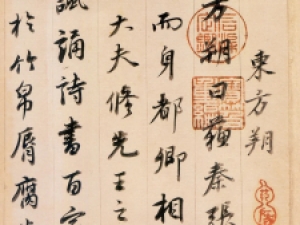 東方朔
方朔曰蘇秦張
而身都卿相
大夫脩先王之
諷誦詩書百家
於竹帛脣腐齒